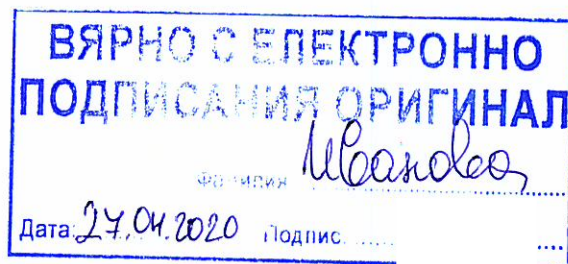 ВЯРНО С ЕЛЕКТРОННО
ПОДПИСАНИЯ ОРИГИНАЛ
Фамилия Иванова
Дата: 27.04.2020 Подпис